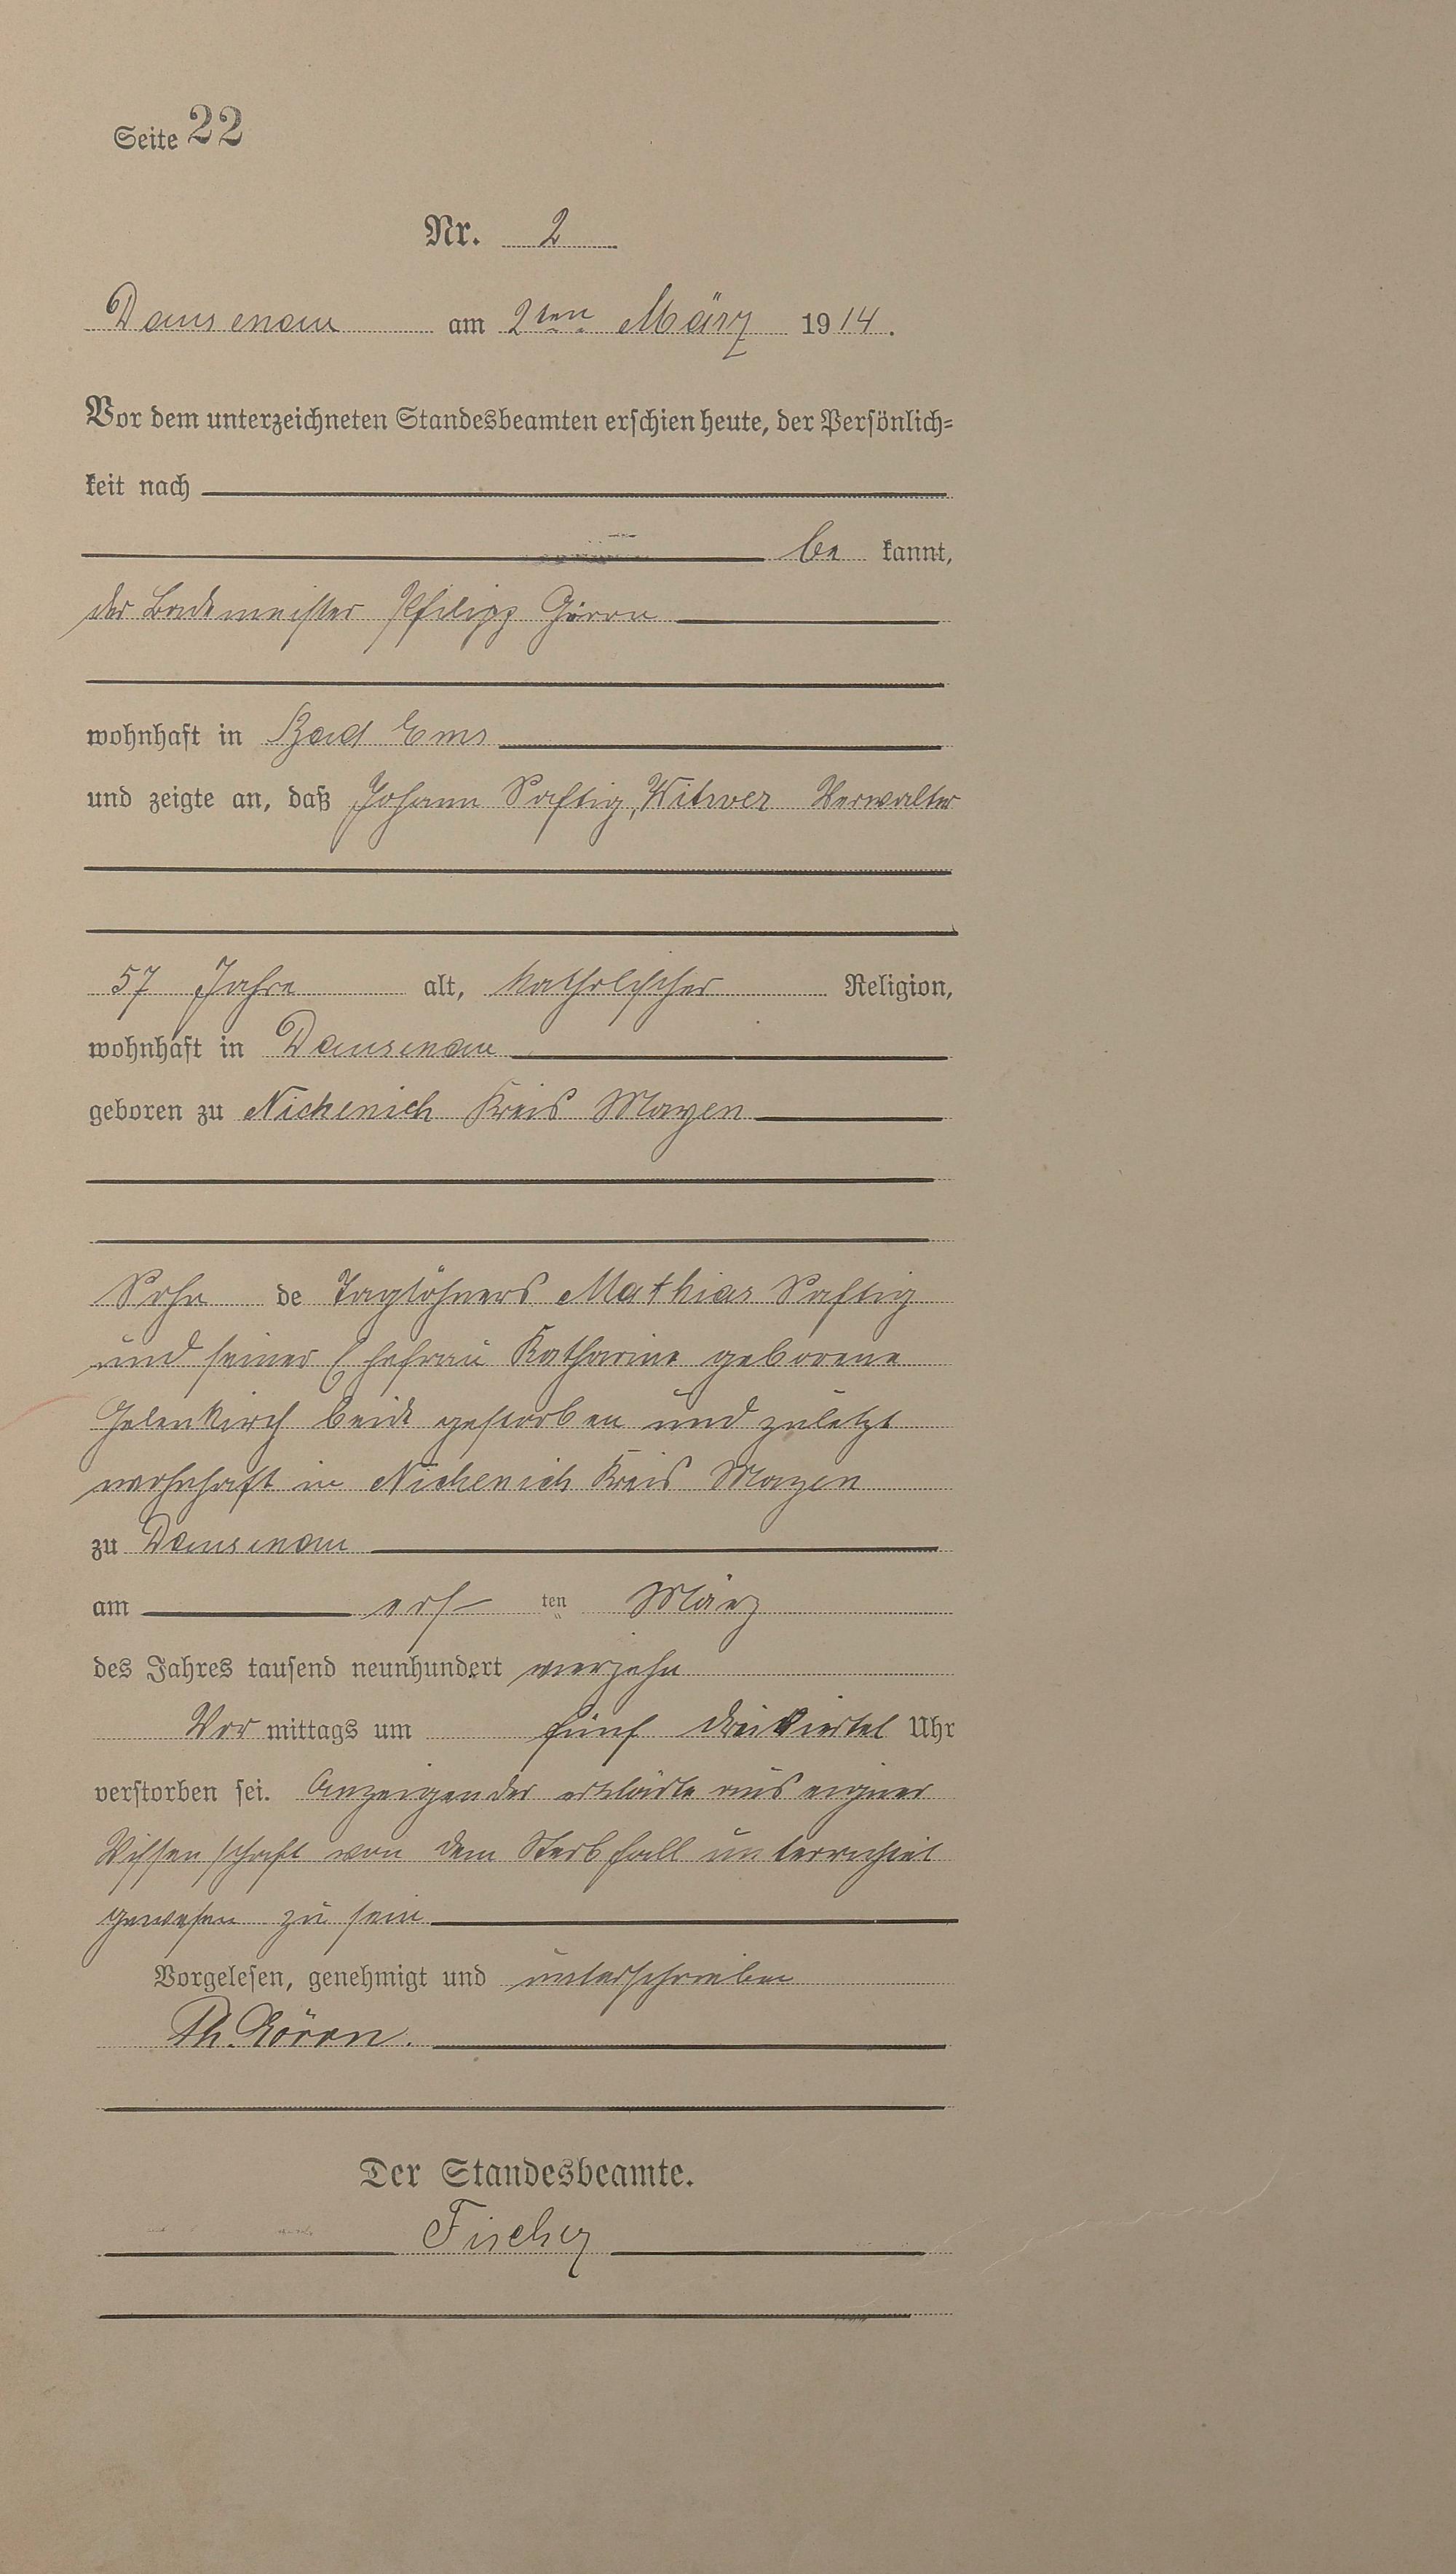 Seite 22
Nr. 2
Dausenau am 2ten März 1914.
Vor dem unterzeichneten Standesbeamten erschien heute, der Persönlich=
keit nach
be kannt,
der Bademeister Philipp
wohnhaft in Bad Ems
und zeigte an, daß Johann Saftig, Witwer Verwalter
57 Jahre alt, katholischer Religion,
wohnhaft in Dausenau
geboren zu Nickenich Kreis Mayen
Sohn de Taglöhners Mathias Saftig
und seiner Ehefrau Katharine geborene
Gelenkirch beide gestorben und zuletzt
wohnhaft in Nickenich Kreis Mayen
zu Dausenau
am ers ten März
des Jahres tausend neunhundert vierzehn
Vor mittags um fünf dreiviertel Uhr
verstorben sei. Anzeigender erklärte aus eigner
Wissenschaft von dem Sterbfall unterrichtet
gewesen zu sein
Vorgelesen, genehmigt und unterschrieben
Ph.
Der Standesbeamte.
Fischer